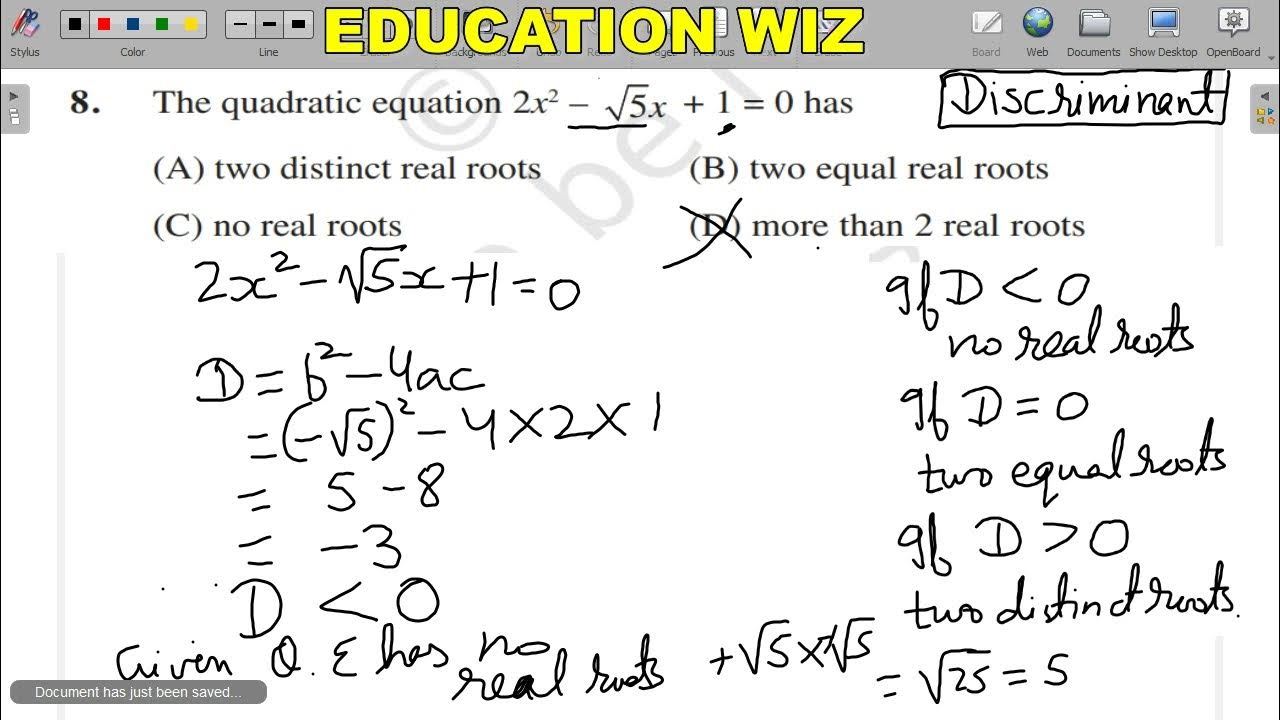 EDUCATION WIZ
Stylus
Color
Line
Board
Web
Documents
Show Desktop
OpenBoard
8. The quadratic equation 2x² – √5x + 1 = 0 has
Discriminant
(A) two distinct real roots
(B) two equal real roots
(C) no real roots
(D) more than 2 real roots
2x² - √5x + 1 = 0
D = b² - 4ac
= (-√5)² - 4 × 2 × 1
= 5 - 8
= -3
D < 0
Given Q.E has no
real roots
If D < 0
no real roots
If D = 0
two equal roots
If D > 0
two distinct roots.
+√5 × √5
= √25 = 5
Document has just been saved...